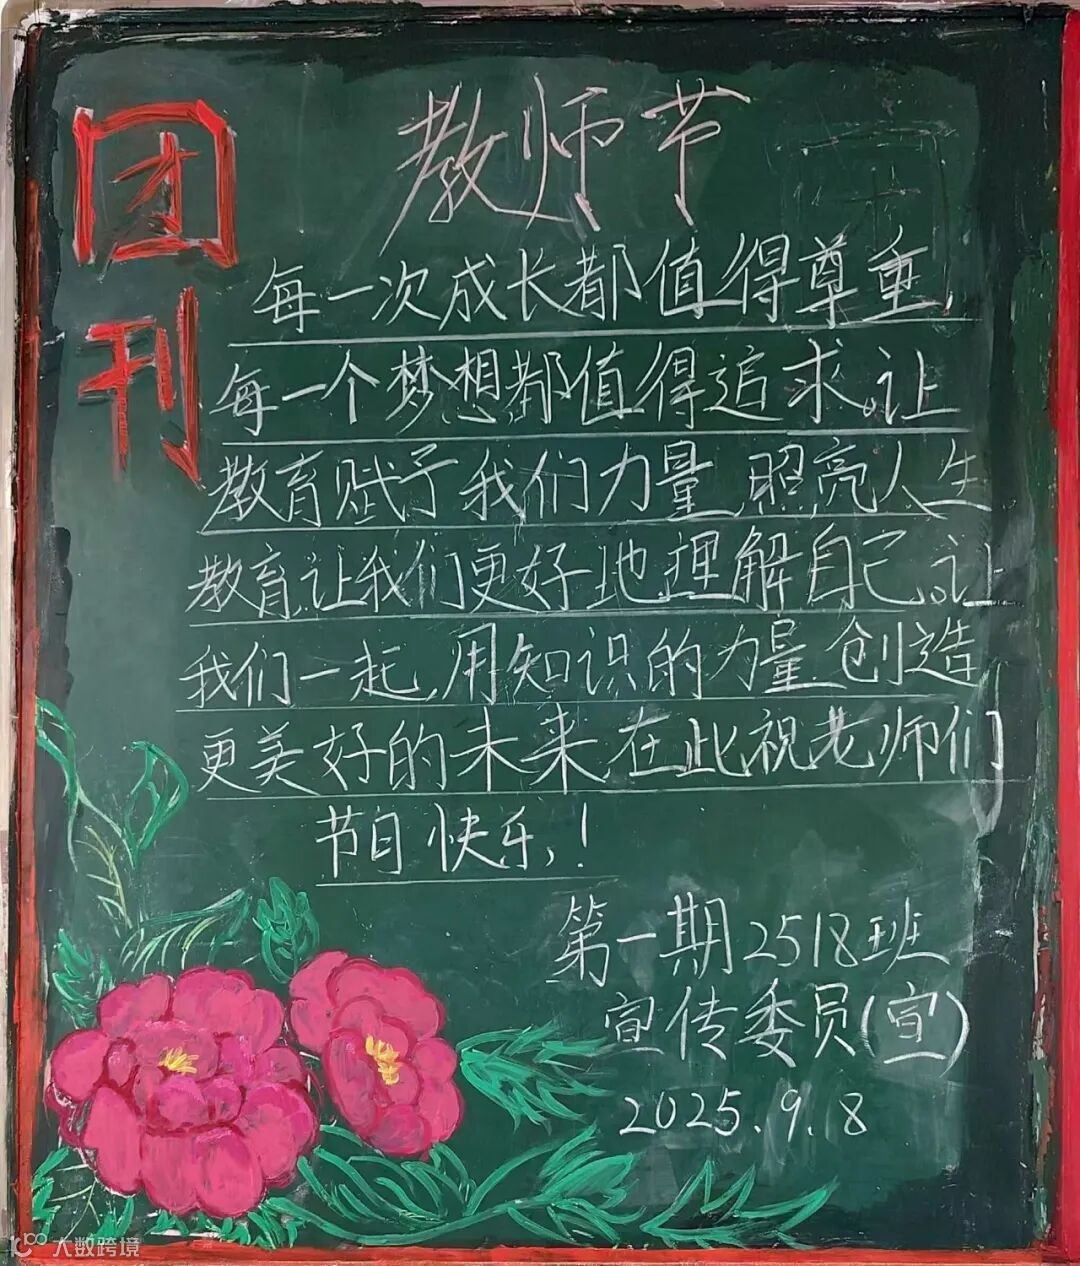 团刊
教师节
每一次成长都值得尊重,
每一个梦想都值得追求。让
教育赋予我们力量,照亮人生
教育,让我们更好地理解自己。让
我们一起,用知识的力量,创造
更美好的未来,在此祝老师们
节日快乐!
第一期2518班
宣传委员(宣)
2025.9.8
大数跨境